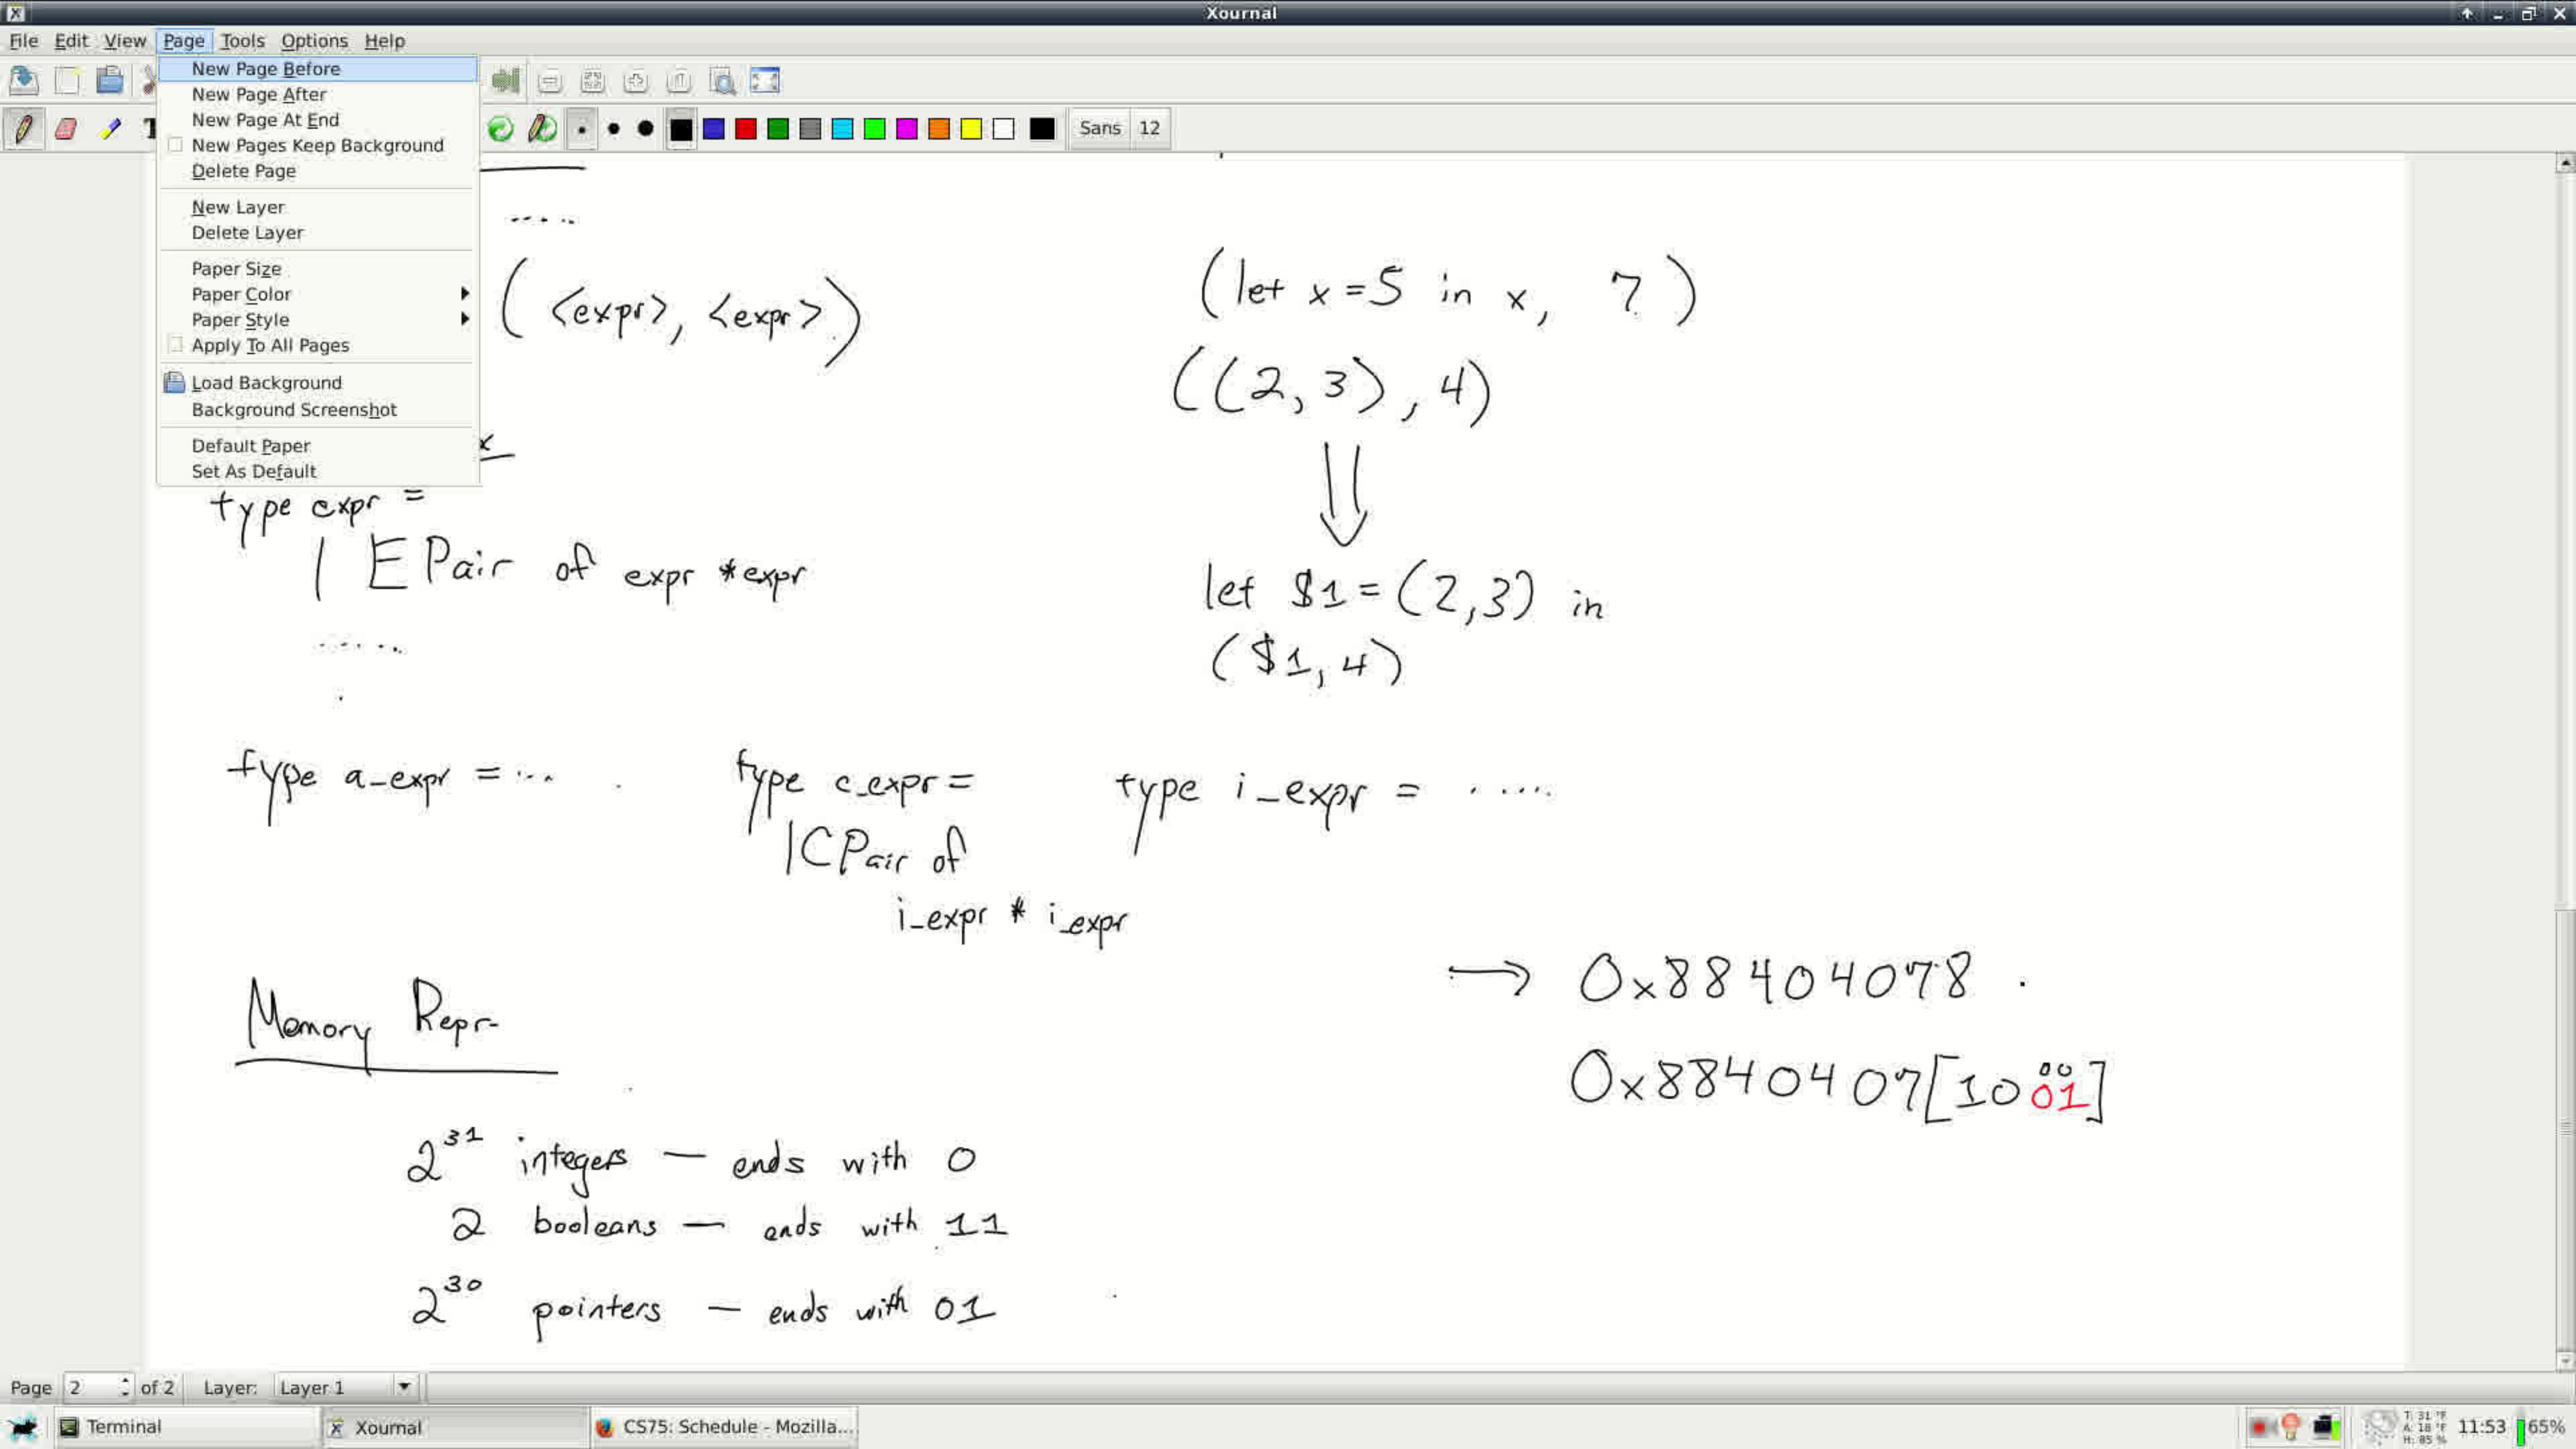 Xournal
File Edit View Page Tools Options Help
New Page Before
New Page After
New Page At End
New Pages Keep Background
Delete Page
New Layer
Delete Layer
Paper Size
Paper Color
Paper Style
Apply To All Pages
Load Background
Background Screenshot
Default Paper
Set As Default
Sans 12
.....
( <expr>, <expr> )
type expr =
| EPair of expr * expr
.....
(let x = 5 in x, 7)
((2, 3), 4)
⇓
let $1 = (2,3) in
($1, 4)
type a_expr = ...
type c_expr =
| CPair of
i_expr * i_expr
type i_expr = .....
→ 0x88404078
0x8840407[1001]
00
Memory Repr.
2^31 integers — ends with 0
2 booleans — ends with 11
2^30 pointers — ends with 01
Page 2 of 2 Layer: Layer 1
Terminal Xournal CS75: Schedule - Mozilla...
T: 31 °F
A: 18 °F
H: 85 %
11:53 65%